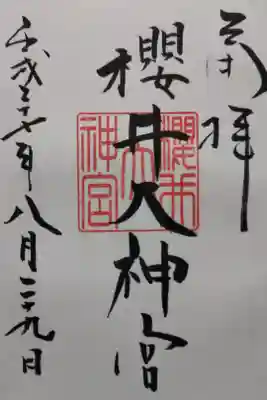 奉拝
櫻井大神宮
平成二十七年八月二十九日
櫻井大神宮